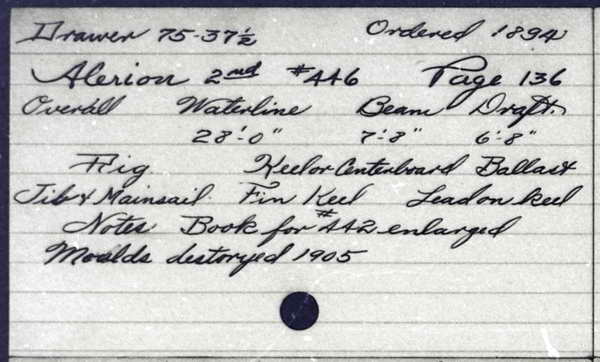 Drawer 75-37½ Ordered 1894
Alerion 2nd #446 Page 136
Overall Waterline Beam Draft.
28'-0" 7'-8" 6'-8"
Rig Keel or Centerboard Ballast
Jib & Mainsail Fin Keel Lead on keel
Notes Book for #442 enlarged
Moulds destoryed 1905